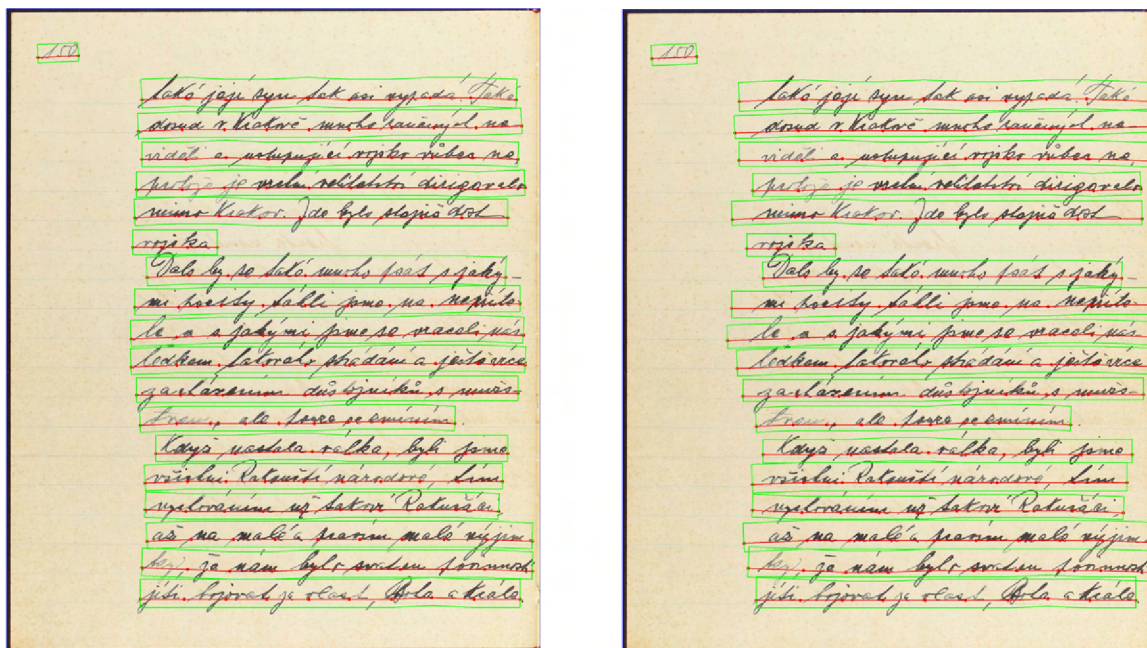 150
také její syn tak asi vypadá. Také
dosud v Krakově mnoho raněných ne-
viděli a ustupující vojsko vůbec ne,
protože je vrchní velitelství dirigovalo
mimo Krakov. Zde bylo stejně dost
vojska
Dalo by se také mnoho psát s jaký-
mi pocity táhli jsme na nepříte-
le a s jakými jsme se vraceli nás-
ledkem strádání a ještě více
zacházením důstojníků s mužs-
tvem, ale
Když nastala válka, byli jsme
všichni Rakouští národové, tím
vychováním už takoví Rakušáci,
až na malé a pravím malé výjim
ky, že nám bylo svatou povinností
jíti bojovat za vlast, Boha a Krále
150
také její syn tak asi vypadá. Také
dosud v Krakově mnoho raněných ne-
viděli a ustupující vojsko vůbec ne,
protože je vrchní velitelství dirigovalo
mimo Krakov. Zde bylo stejně dost
vojska
Dalo by se také mnoho psát s jaký-
mi pocity táhli jsme na nepříte-
le a s jakými jsme se vraceli nás-
ledkem strádání a ještě více
zacházením důstojníků s mužs-
tvem, ale
Když nastala válka, byli jsme
všichni Rakouští národové, tím
vychováním už takoví Rakušáci,
až na malé a pravím malé výjim
ky, že nám bylo svatou povinností
jíti bojovat za vlast, Boha a Krále